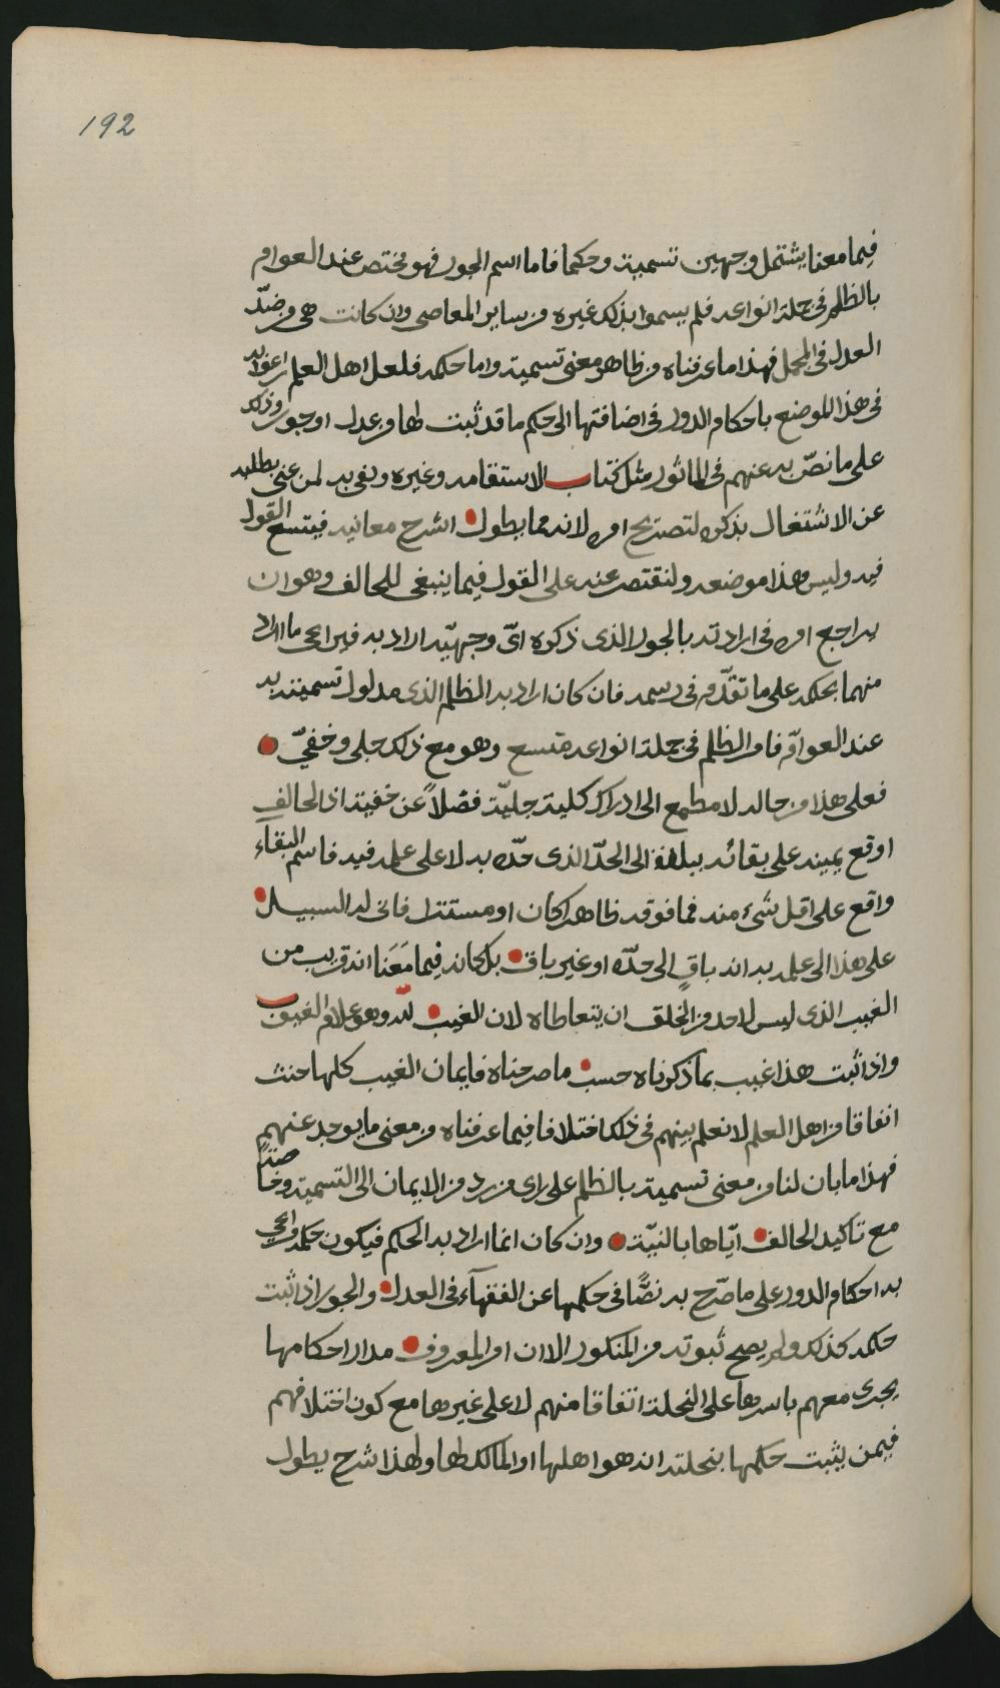 192
فيما معنا يشتمل وجهين تسمية وحكما فاما اسم الجور فهو مختص عند العوام
بالظلم في جملة انواعه فلم يسموا بذلك غيره من ساير المعاصي وان كانت هي من ضدّ
العدل في المجمل فهذا ما عرفناه من ظاهر معنى تسمية واما حكمه فلعل اهل العلم
في هذا الموضع باحكام الدور في اضافتها الى حكم ما قد ثبت لها من عدل او جور وذلك
على ما نصّ به عنهم في الماثور مثل كتاب الاستقامه وغيره وبغي به لمن عنى بطلبه
عن الاشتغال بذكره لتصريح امره لانه مما يطول الشرح معانيه فيتسع القول
فيه وليس هذا موضعه ولنقتصر عنه على القول فيما ينبغي للحالف وهو ان
يراجع امره في ارادته بالجور الذي ذكره ايّ وجهيّه اراد به فيراعي ما اراد
منهما بحكمه على ما تقدّم في رسمه فان كان اراد به الظلم الذي مدلول تسميته به
عند العوامّ فامر الظلم في جملة انواعه متسع وهو مع ذلك جلي وخفيّ
فعلى هذا من حاله لا مطمع الى ادراك كلية جليّة فضلاً عن خفيته اذ الحالف
اوقع يمينه على بقائه ببلده الى الحدّ الذي حدّه به لا على علمه فيه فاسم البقاء
واقع على اقل شيء منه فما فوقه ظاهرا كان او مستترا فانى له السبيل
على هذا الى علمه به انه باقٍ الى حدّه او غير باق بل كانه فيما مَعَنا انه قريب من
الغيب الذي ليس لاحد من الخلق ان يتعاطاه لان الغيب لله وهو علام الغيوب
واذا ثبت هذا غيب بما ذكرناه حسب ما صرحناه فايمان الغيب كلها حنث
اتفاقا من اهل العلم لا نعلم بينهم في ذلك اختلافا فيما عرفناه من معنى ما يوجد عنهم
فهذا ما بان لنا من معنى تسمية بالظلم على راي من رد من الايمان الى التسمية
مع تاكيد الحالف ايّاها بالنيّة وان كان انما اراد به الحكم فيكون حكمه
به احكام الدور على ما صرّح به نصًّا في حكمها عن الفقهآء في العدل والجور اذا ثبت
حكمه كذلك ولم يصح ثبوته من المنكور الا ان امر المعروف مدار احكامها
يجري معهم باسرها على النحلة اتفاقا منهم لا على غيرها مع كون اختلافهم
فيمن يثبت حكمها بنحلته انه هو اهلها او المالك لها ولهذا شرح يطول